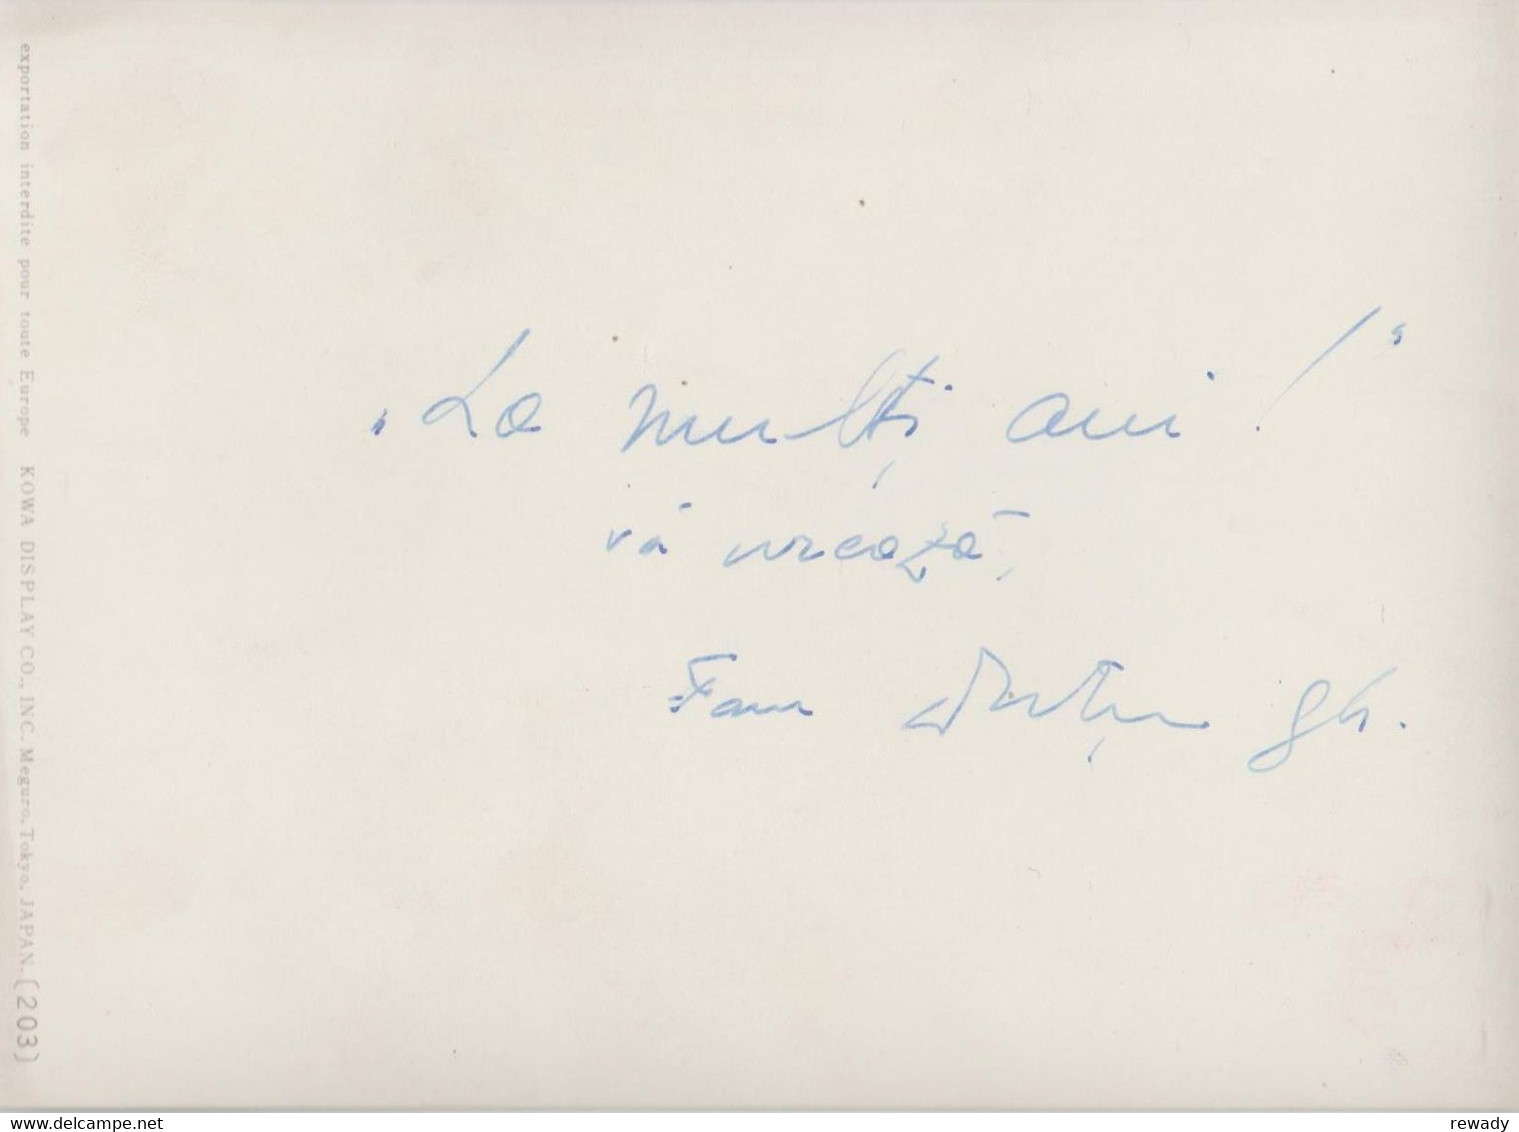 exportation interdite pour toute Europe KOWA DISPLAY CO., INC. Meguro, Tokyo, JAPAN. [203]
„La mulți ani!“
vă urează,
Fam Duțu Gh.
www.delcampe.net
rewady